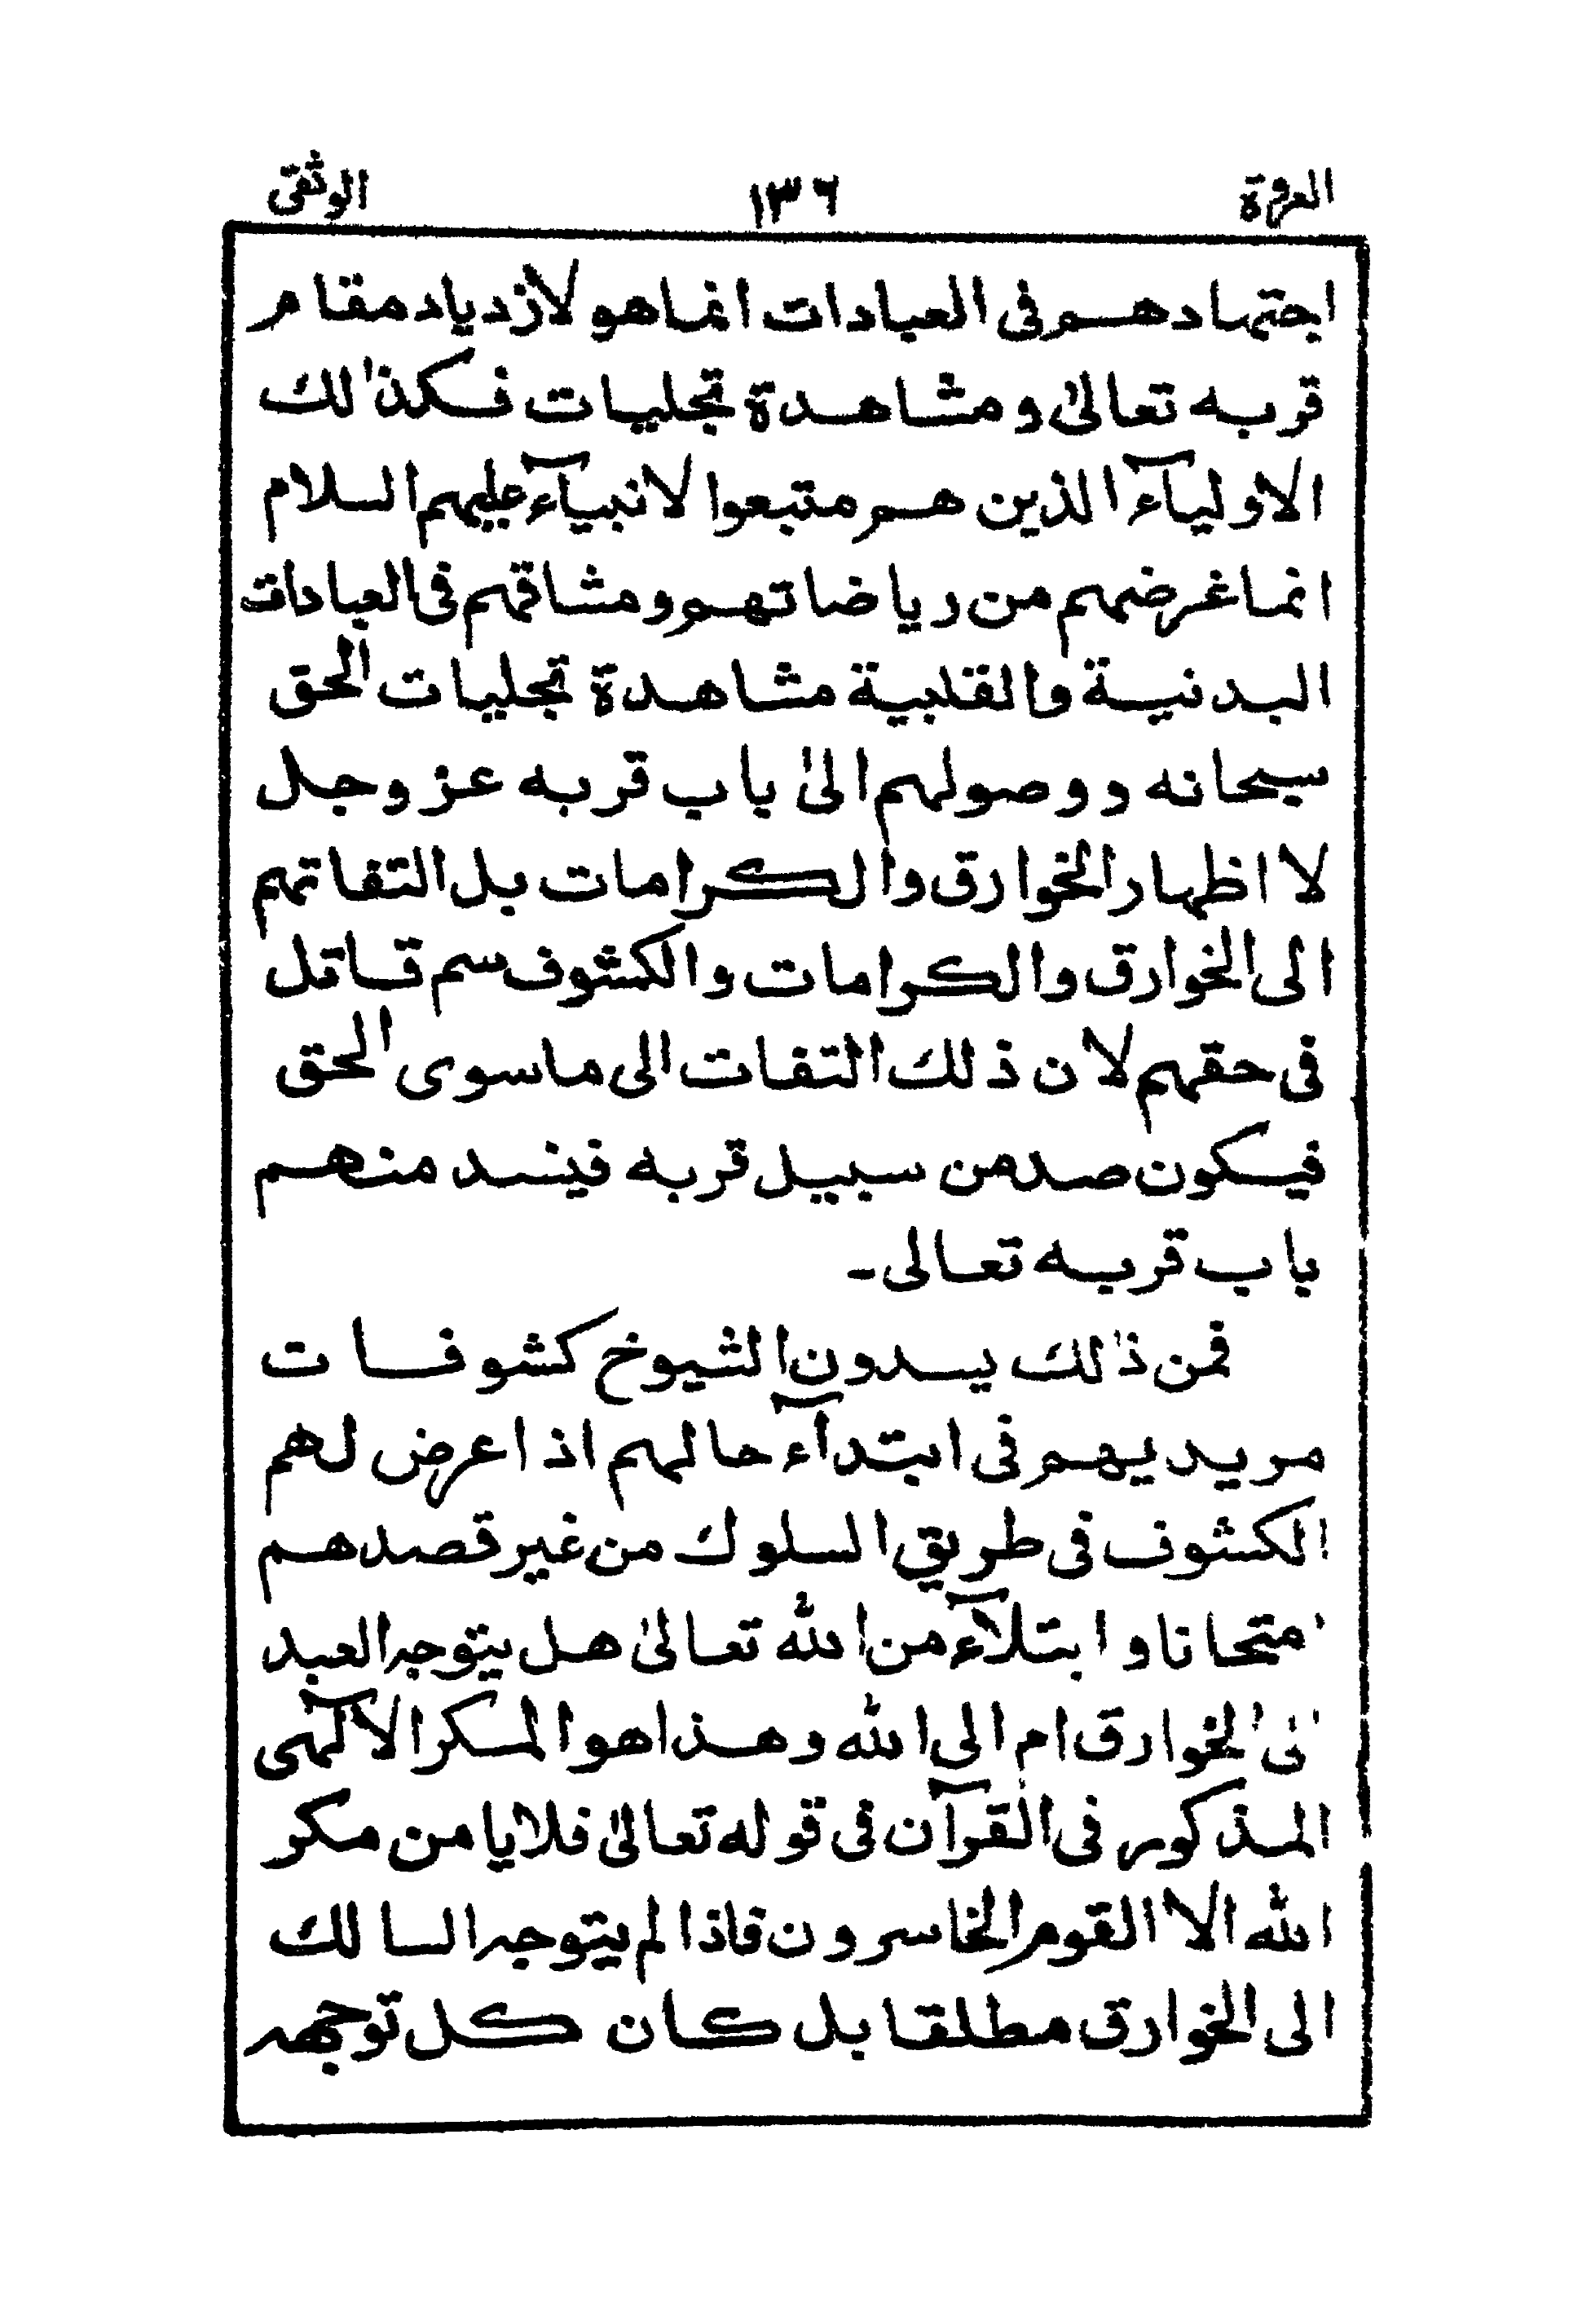 العروة ١٣٦ الوثقى
اجتهادهم فى العبادات انما هو لازدياد مقام
قربه تعالىٰ و مشاهدة تجليات فكذٰلك
الاوليآء الذين هم متبعوا لانبيآء عليهم السلام
انما غرضهم من رياضاتهم و مشاقهم فى العبادات
البدنية والقلبية مشاهدة تجليات الحق
سبحانه و وصولهم الىٰ باب قربه عز و جل
لا اظهار الخوارق والكرامات بل التفاتهم
الى الخوارق والكرامات والكشوف سم قاتل
فى حقهم لان ذلك التفات الى ما سوى الحق
فيكون صد من سبيل قربه فينسد منهم
باب قربه تعالى ـ
فمن ذٰلك يسدون الشيوخ كشوفات
مريديهم فى ابتدآء حالهم اذا عرض لهم
الكشوف فى طريق السلوك من غير قصدهم
امتحانا و ابتلآء من الله تعالىٰ هل يتوجه العبد
الى الخوارق ام الى الله و هذا هو المكر الالٓهى
المذكور فى القرآن فى قوله تعالىٰ فلا يا من مكر
الله الا القوم الخاسرون فاذا لم يتوجه السالك
الى الخوارق مطلقا بل كان كل توجهه